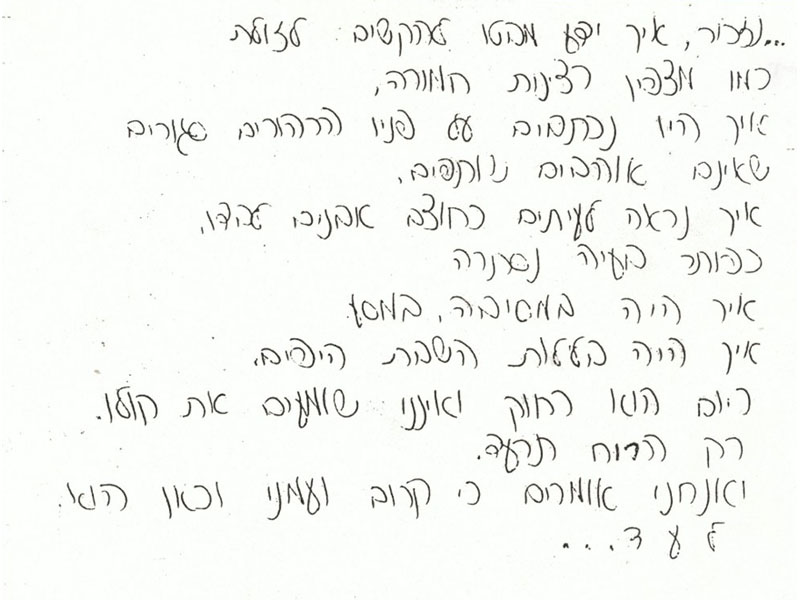 ...נזכור, איך ידע מבטו להקשיב לזולת
כמו מצפין רצינות חמורה,
איך היו נכתבים על פניו הרהורים סגורים
שאינם אוהבים ניותפים,
איך נראה לעיתים כחוצב אבנים לבדו,
כפותר בעיה נסתרה
איך היה במסיבה, במסע
איך היה בלילות השבת היפים.
היום הוא רחוק ואיננו שומעים את קולו.
רק הרוח תרעד.
ואנחנו אומרים כי קרוב ועמנו וכאן הוא.
לעד...